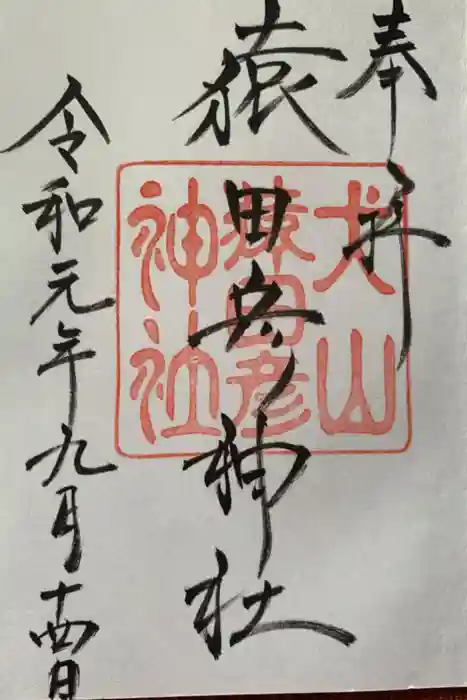 奉拝
猿田彦神社
令和元年九月十四日
犬山
猿田彦
神社